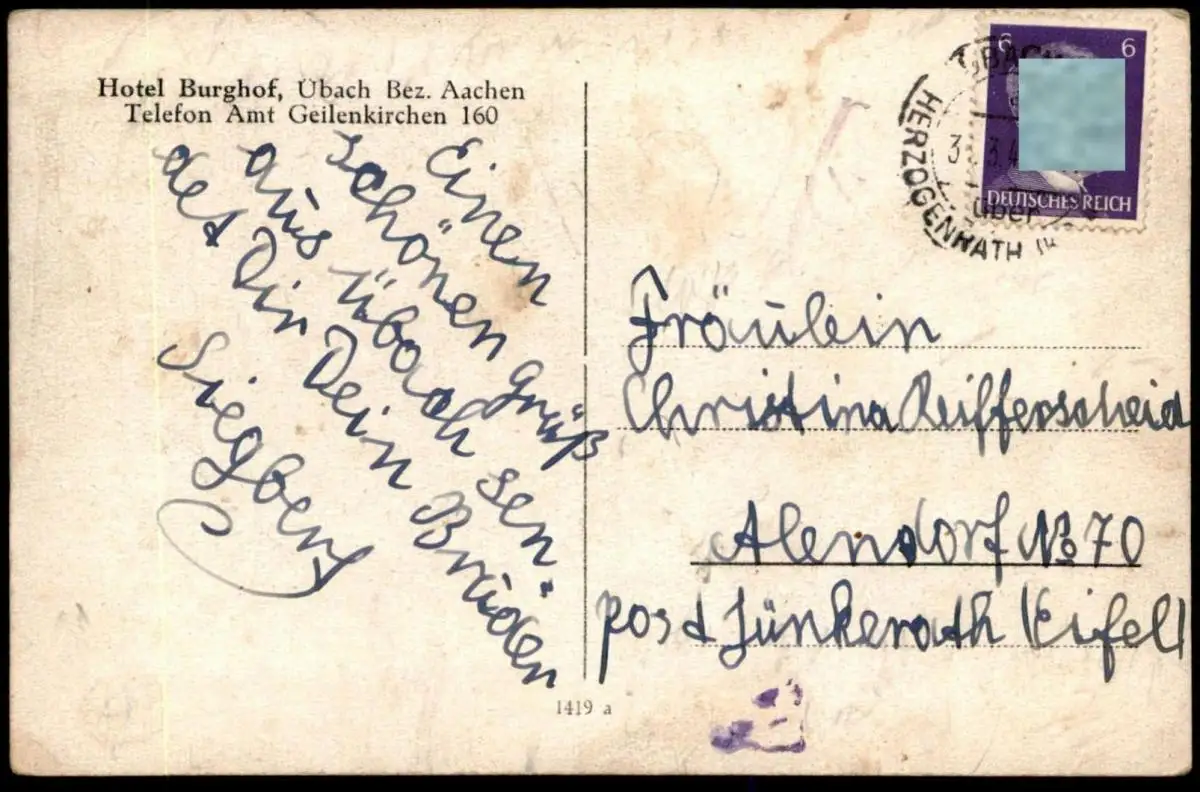 Hotel Burghof, Übach Bez. Aachen
Telefon Amt Geilenkirchen 160
Einen
schönen Grüß
aus Übach sen-
det Dir Dein Bruder
Siegbert
6 6
DEUTSCHES REICH
ÜBACH
über
HERZOGENRATH
Fräulein
Christina Reifferscheid
Alendorf No 70
post Jünkerath (Eifel)
1419 a